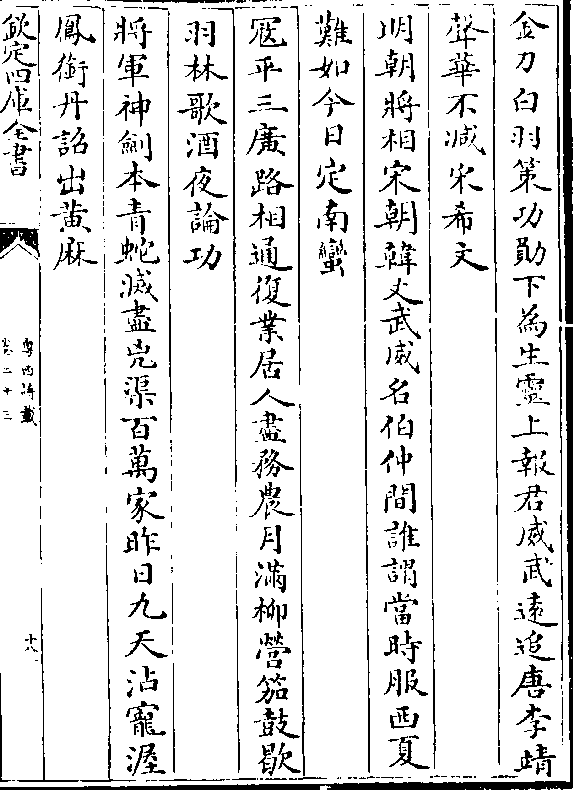 金刀白羽策功勛下為生靈上報君威武遠追唐李靖
聲華不減宋希文
明朝將相宋朝韓文武威名伯仲間誰謂當時服西夏
難如今日定南蠻
寇平三廣路相通復業居人盡務農月滿柳營笳鼓歇
羽林歌酒夜論功
將軍神劍本青蛇滅盡兇渠百萬家昨日九天沾寵渥
鳳銜丹詔出黃麻
欽定四庫全書
粵西詩載
卷二十三
十八